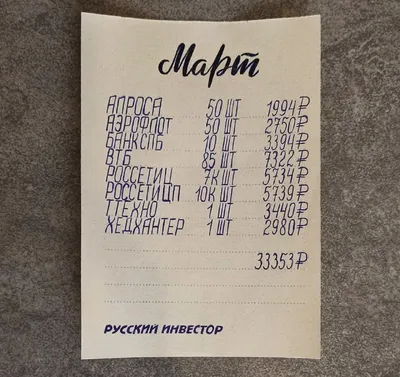 Март
АЛРОСА 50 ШТ 1994₽
АЭРОФЛОТ 50 ШТ 2750₽
БАНКСПБ 10 ШТ 3394₽
ВТБ 85 ШТ 7322₽
РОССЕТИЦ 7К ШТ 5734₽
РОССЕТИЦП 10К ШТ 5739₽
ТТЕХНО 1 ШТ 3440₽
ХЕДХАНТЕР 1 ШТ 2980₽
33353₽
РУССКИЙ ИНВЕСТОР